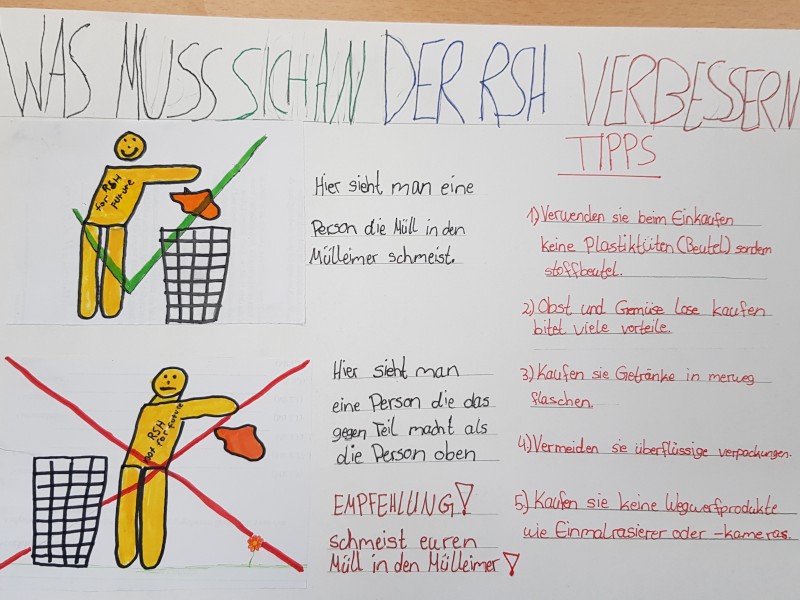 WAS MUSS SICH AN DER RSH VERBESSERN
for RSH
FUTURE
Hier sieht man eine
Person die Müll in den
Mülleimer schmeist.
not RSH
for future
Hier sieht man
eine Person die das
gegen Teil macht als
die Person oben
EMPFEHLUNG!
schmeist euren
Müll in den Mülleimer!
TIPPS
1) Verwenden sie beim Einkaufen
keine Plastiktüten (Beutel) sondern
stoffbeutel.
2) Obst und Gemüse lose kaufen
bitet viele vorteile.
3) Kaufen sie Getränke in merweg
flaschen.
4) Vermeiden sie überflüssige verpackungen.
5) Kaufen sie keine Wegwerfprodukte
wie Einmalrasierer oder -kameras.